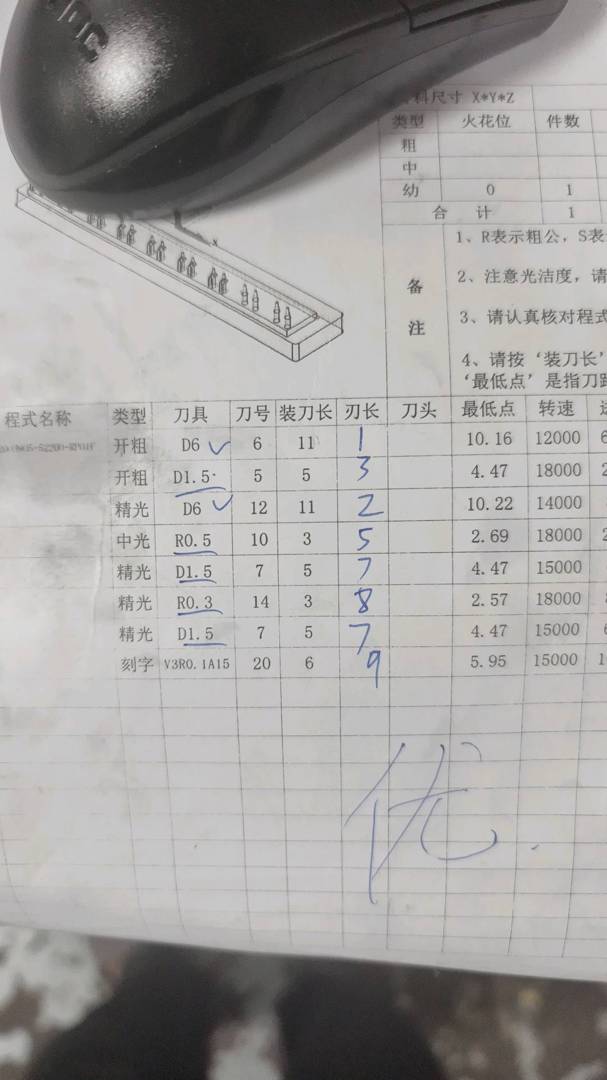 AOC
料尺寸 X*Y*Z
类型 火花位 件数
粗
中
幼 0 1
合 计 1
备注
1、R表示粗公，S表
2、注意光洁度，请
3、请认真核对程式
4、请按‘装刀长’
‘最低点’是指刀路
x
程式名称 类型 刀具 刀号 装刀长 刃长 刀头 最低点 转速
开粗 D6 6 11 1 10.16 12000 6
开粗 D1.5 5 5 3 4.47 18000 2
精光 D6 12 11 2 10.22 14000
中光 R0.5 10 3 5 2.69 18000 2
精光 D1.5 7 5 7 4.47 15000
精光 R0.3 14 3 8 2.57 18000
精光 D1.5 7 5 7 4.47 15000 6
刻字 V3R0.1A15 20 6 9 5.95 15000 1
优.